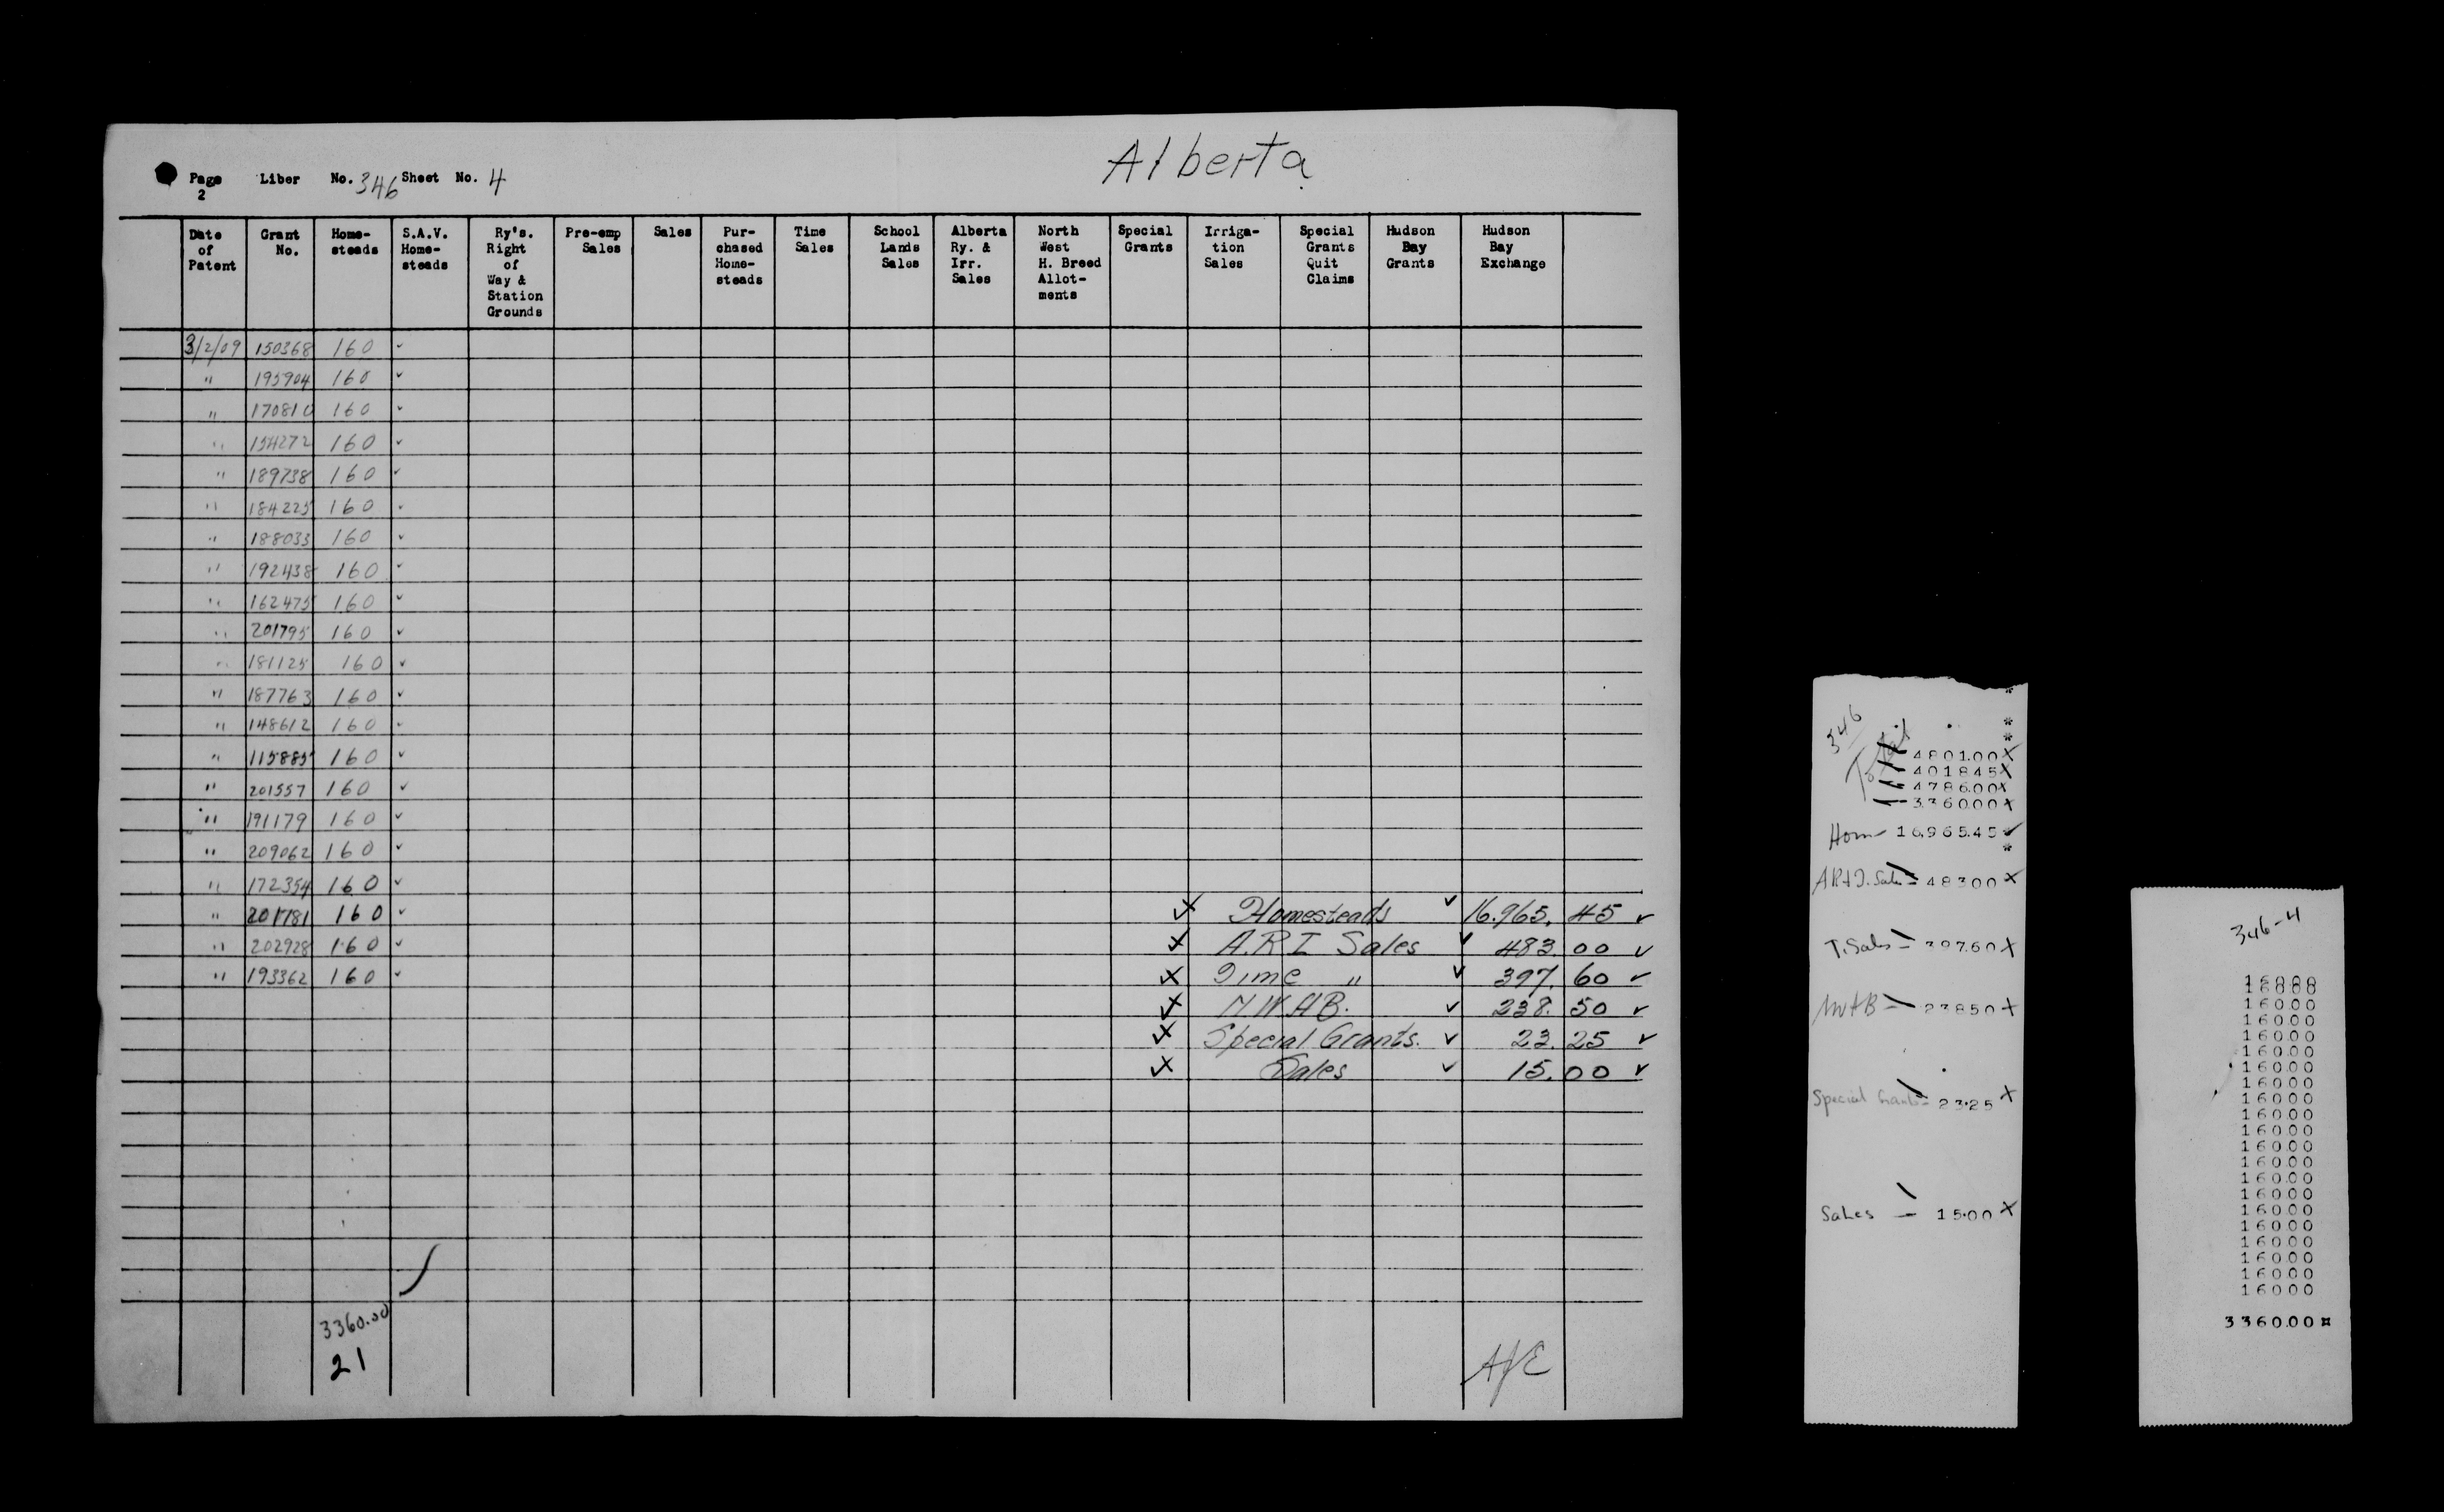 Alberta
Page 2 Liber No. 346 Sheet No. 4
Date of Patent | Grant No. | Home-steads | S.A.V. Home-steads | Ry's. Right of Way & Station Grounds | Pre-emp Sales | Sales | Pur-chased Home-steads | Time Sales | School Lands Sales | Alberta Ry. & Irr. Sales | North West H. Breed Allot-ments | Special Grants | Irriga-tion Sales | Special Grants Quit Claims | Hudson Bay Grants | Hudson Bay Exchange
3/2/09 150368 160 ✓
" 195904 160 ✓
" 170810 160 ✓
" 154272 160 ✓
" 189738 160 ✓
" 184225 160 ✓
" 188033 160 ✓
" 192438 160 ✓
" 162475 160 ✓
" 201795 160 ✓
" 181125 160 ✓
" 187763 160 ✓
" 148612 160 ✓
" 115885 160 ✓
" 201557 160 ✓
" 191179 160 ✓
" 209062 160 ✓
" 172354 160 ✓
" 201781 160 ✓ X Homesteads ✓ 16.965. 45 ✓
" 202928 160 ✓ X A.R I Sales ✓ 483. 00 ✓
" 193362 160 ✓ X Time " ✓ 397. 60 ✓
X N.W.HB. ✓ 238. 50 ✓
X Special Grants. ✓ 23. 25 ✓
X Sales ✓ 15. 00 ✓
3360.00
21
346
Total
4801.00 X
4018.45 X
4786.00 X
3360.00 X
Hom 16,965.45 ✓
AR+I. Sales = 483.00 X
T. Sales = 397.60 X
NWHB = 238.50 X
Special Grants = 23.25 X
Sales - 15.00 X
346-4
160.00
160.00
160.00
160.00
160.00
160.00
160.00
160.00
160.00
160.00
160.00
160.00
160.00
160.00
160.00
160.00
160.00
160.00
160.00
160.00
160.00
3360.00 ¤